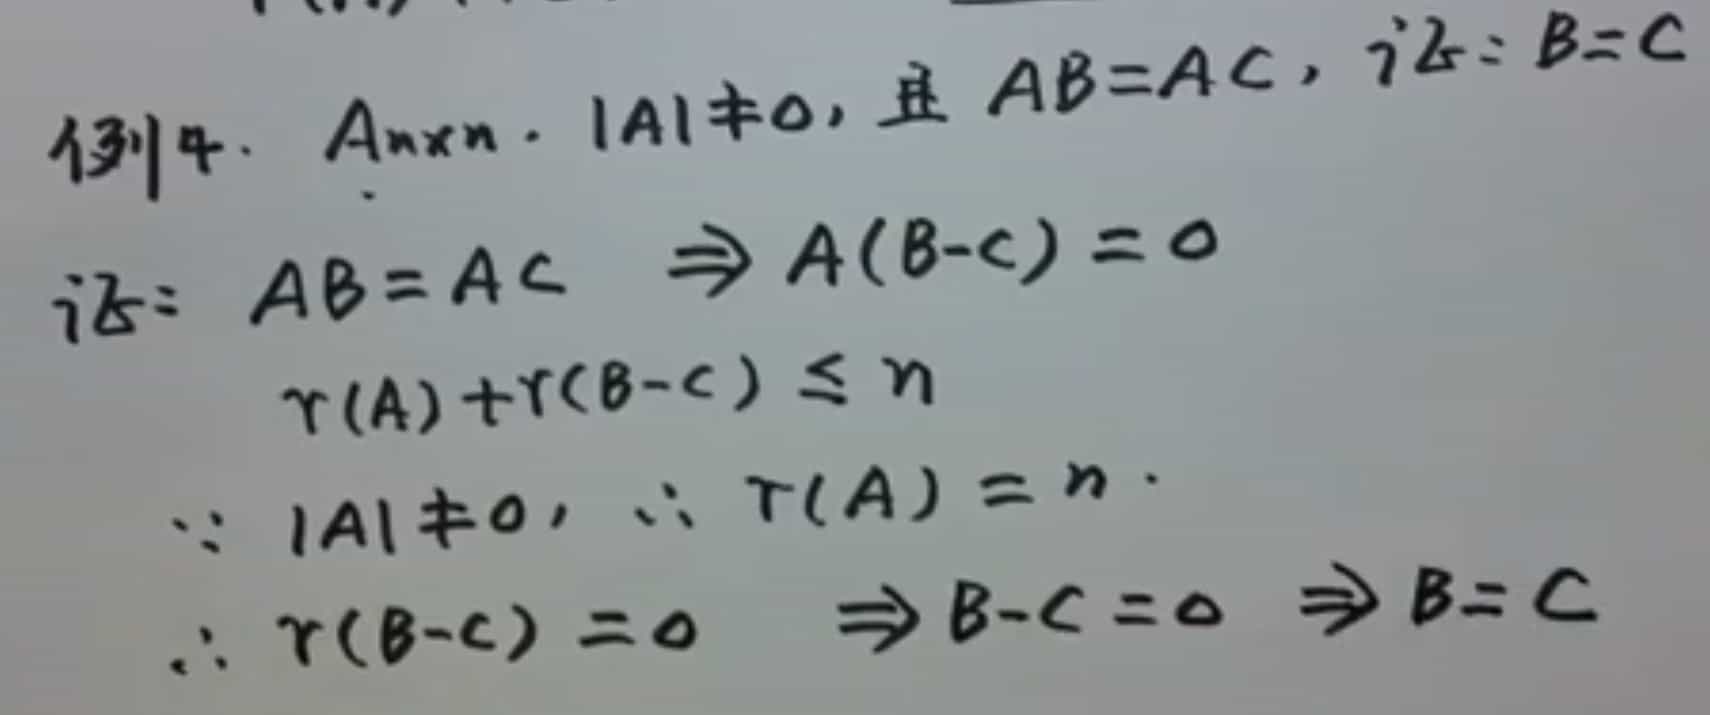 例4. Aₙₓₙ. |A|≠0, 且 AB=AC, 证: B=C
证: AB=AC ⇒ A(B-C)=0
r(A)+r(B-C)≤n
∵ |A|≠0, ∴ r(A)=n.
∴ r(B-C)=0 ⇒ B-C=0 ⇒ B=C